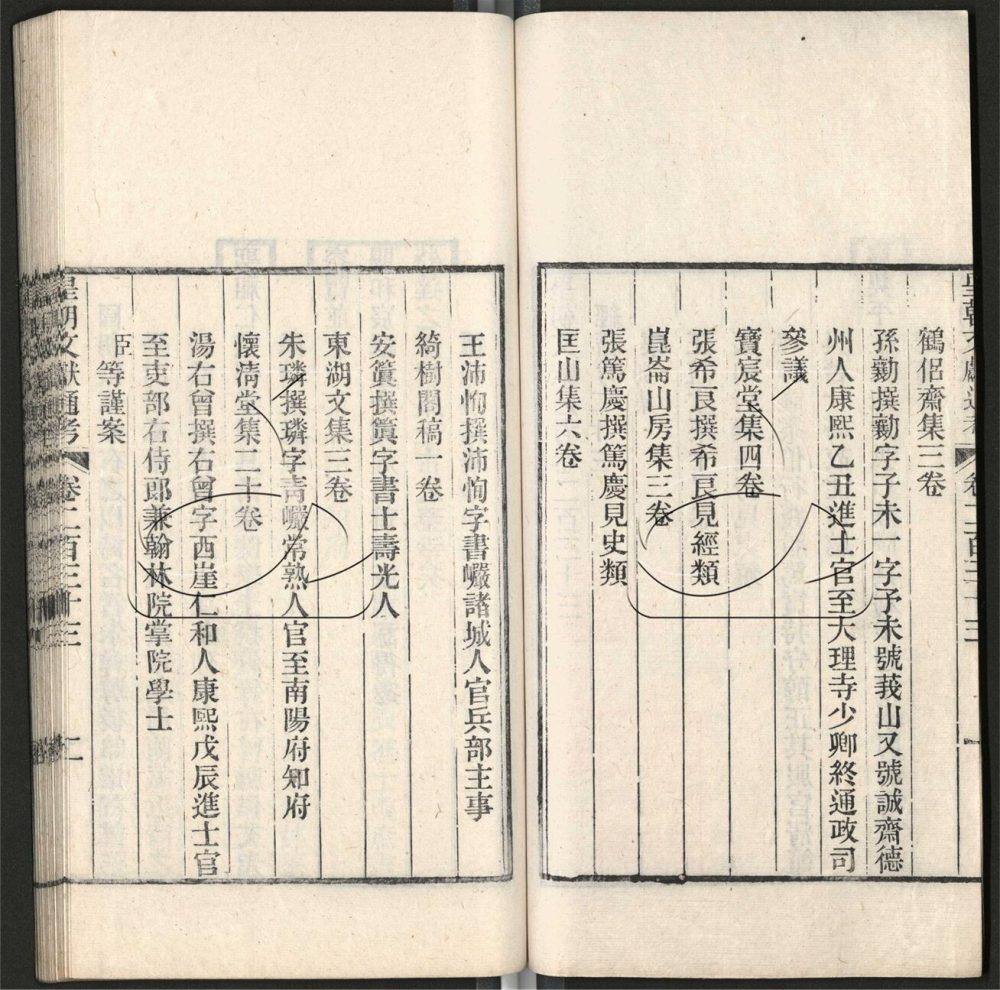 鶴侶齋集三卷
孫勷撰勷字子未一字予未號莪山又號誠齋德
州人康熙乙丑進士官至大理寺少卿終通政司
參議
寶宸堂集四卷
張希良撰希良見經類
崑崙山房集三卷
張篤慶撰篤慶見史類
匡山集六卷
王沛恂撰沛恂字書巖諸城人官兵部主事
綺樹閣稿一卷
安箕撰箕字書士壽光人
東湖文集三卷
朱璘撰璘字青巖常熟人官至南陽府知府
懷清堂集二十卷
湯右曾撰右曾字西崖仁和人康熙戊辰進士官
至吏部右侍郎兼翰林院掌院學士
臣等謹案
皇朝文獻通考 卷二百三十三